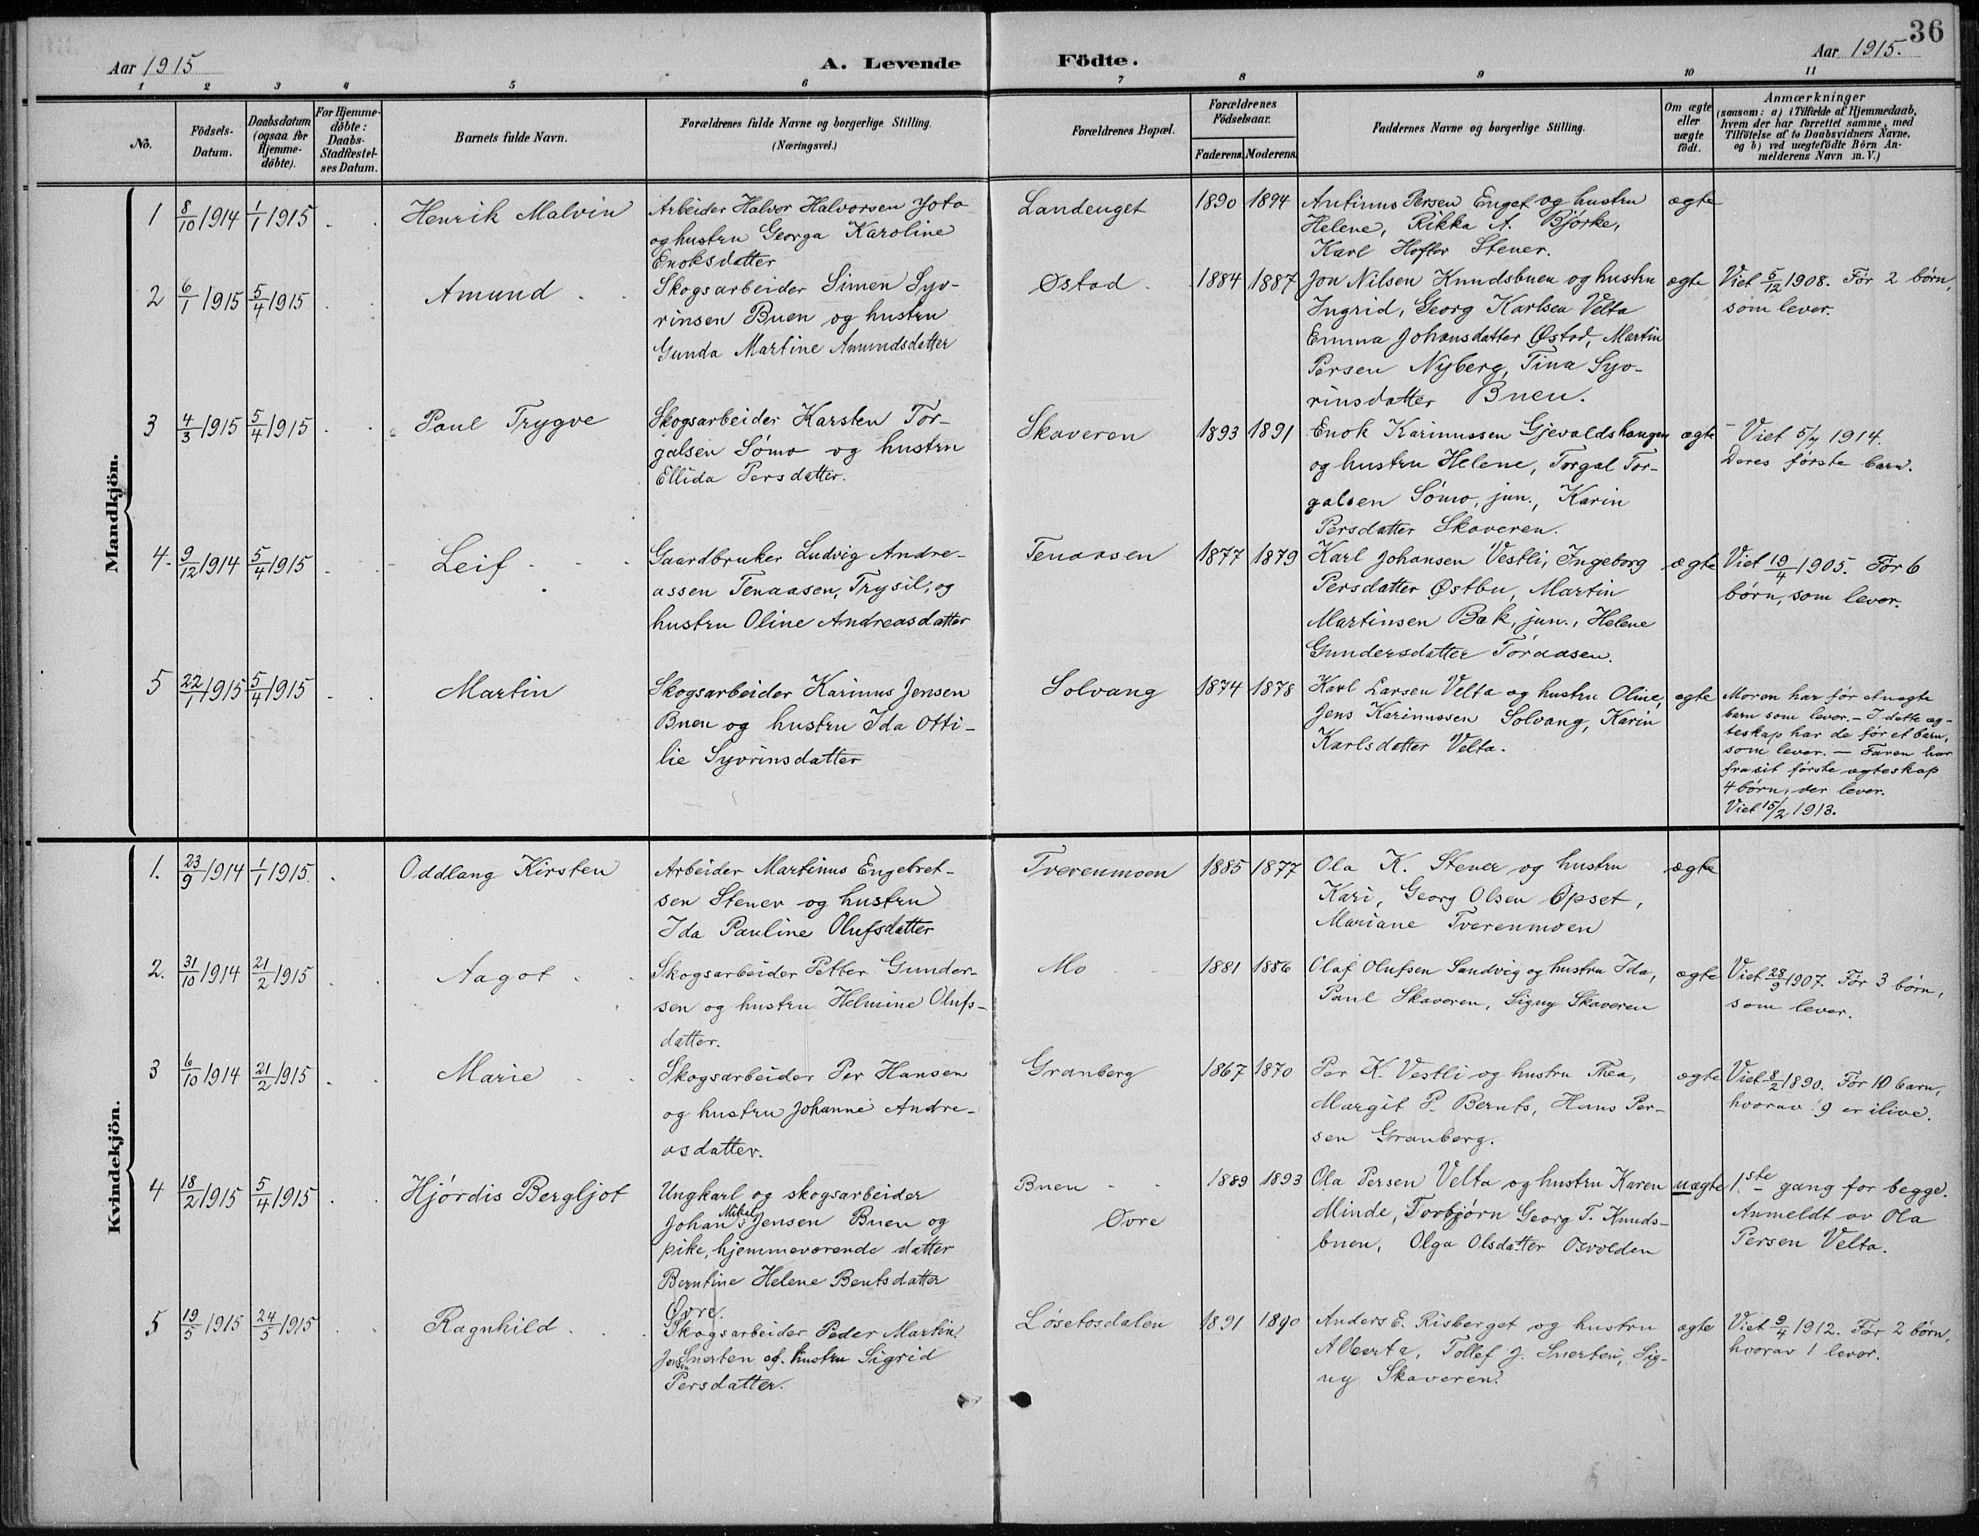 36
Aar 1915
A. Levende
Födte.
Aar 1915.
1 2 3 4 5 6 7 8 9 10 11
No.
Födsels-
Datum.
Daabsdatum
(ogsaa for
Hjemme-
döbte).
For Hjemme-
döbte:
Daabs-
Stadfæstel-
ses Datum.
Barnets fulde Navn.
Forældrenes fulde Navne og borgerlige Stilling.
(Næringsvei.)
Forældrenes Bopæl.
Forældrenes
Födselsaar.
Faderens. Moderens.
Faddernes Navne og borgerlige Stilling.
Om ægte
eller
uægte
födt.
Anmærkninger
(saasom: a) i Tilfælde af Hjemmedaab,
hvem der har forrettet samme, med
Tilföielse af to Daabsvidners Navne,
og b) ved uægtefödte Börn An-
melderens Navn m. V.)
Mandkjön.
1 8/10 1914 1/1 1915 Henrik Malvin
Arbeider Halvor Halvorsen Joto
og hustru Georga Karoline
Enoksdatter
Landenget 1890 1894
Antinus Persen Enget og hustru
Helene, Rikka A. Bjørke,
Karl Hofter Stener.
ægte
2 6/1 1915 5/4 1915 Amund
Skogsarbeider Simen Syv-
rinsen Buen og hustru
Gunda Martine Amundsdatter
Østad 1884 1887
Jon Nilsen Knudsbuen og hustru
Ingrid, Georg Karlsen Velta
Emma Johansdatter Østad, Martin
Persen Nyberg, Tina Syv-
rinsdatter Buen.
ægte
Viet 5/12 1908. Før 2 børn,
som lever.
3 4/3 1915 5/4 1915 Paul Trygve
Skogsarbeider Karsten Tor-
galsen Sømo og hustru
Ellida Persdatter.
Skaveren 1893 1891
Enok Karinussen Gjevaldshaugen
og hustru Helene, Torgal Tor-
galsen Sømo, jun., Karin
Persdatter Skaveren.
ægte
Viet 5/7 1914.
Deres første barn.
4. 9/12 1914 5/4 1915 Leif
Gaardbruker Ludvig Andre-
assen Tenaasen, Trysil, og
hustru Oline Andreasdatter
Tenaasen 1877 1879
Karl Johansen Vestli, Ingeborg
Persdatter Østbu, Martin
Martinsen Bak, jun., Helene
Gundersdatter Töraasen.
ægte
Viet 19/4 1905. Før 6
børn, som lever.
5 22/1 1915 5/4 1915 Martin
Skogsarbeider Karinus Jensen
Buen og hustru Ida Otti-
lie Syvrinsdatter
Solvang 1874 1878
Karl Larsen Velta og hustru Oline,
Jens Karinussen Solvang, Karin
Karlsdatter Velta.
ægte
Moren har før et uægte
barn som lever. – I dette æg-
teskap har de før et barn,
som lever. – Faren har
fra sit første ægteskap
4 børn, der lever.
Viet 15/2 1913.
Kvindekjön.
1. 23/9 1914 1/1 1915 Oddlang Kirsten
Arbeider Martinus Engebret-
sen Stener og hustru
Ida Pauline Olufsdatter
Tverenmoen 1885 1877
Ola K. Stener og hustru
Kari, Georg Olsen Opset,
Mariane Tverenmoen
ægte
2. 31/10 1914 21/2 1915 Aagot
Skogsarbeider Petter Gunder-
sen og hustru Helmine Olufs-
datter.
Mo 1881 1886
Olaf Olufsen Sandvig og hustru Ida,
Paul Skaveren, Signy Skaveren
ægte
Viet 28/9 1907. Før 3 børn,
som lever.
3 6/10 1914 21/2 1915 Marie
Skogsarbeider Per Hansen
og hustru Johanne Andre-
asdatter.
Granberg 1867 1870
Per K. Vestli og hustru Thea,
Margit P. Bernts, Hans Per-
sen Granberg.
ægte
Viet 8/2 1890. Før 10 barn,
hvorav 9 er ilive.
4 18/2 1915 5/4 1915 Hjørdis Bergljot
Ungkarl og skogsarbeider
Johan Mikal Jensen Buen og
pike, hjemmeværende datter
Berntine Helene Berntsdatter
Øvre.
Buen
Øvre
1889 1893
Ola Persen Velta og hustru Karen
Minde, Torbjørn Georg T. Knuds-
buen, Olga Olsdatter Osvolden
uægte
1.ste gang for begge.
Anmeldt av Ola
Persen Velta.
5 19/5 1915 24/5 1915 Ragnhild
Skogsarbeider Peder Martin
Jensen Snerten og hustru Sigrid
Persdatter.
Løsetosdalen 1891 1890
Anders E. Risberget og hustru
Alberta, Tollef J. Snerten, Sig-
ny Skaveren.
ægte
Viet 9/4 1912. Før 2 børn,
hvorav 1 lever.